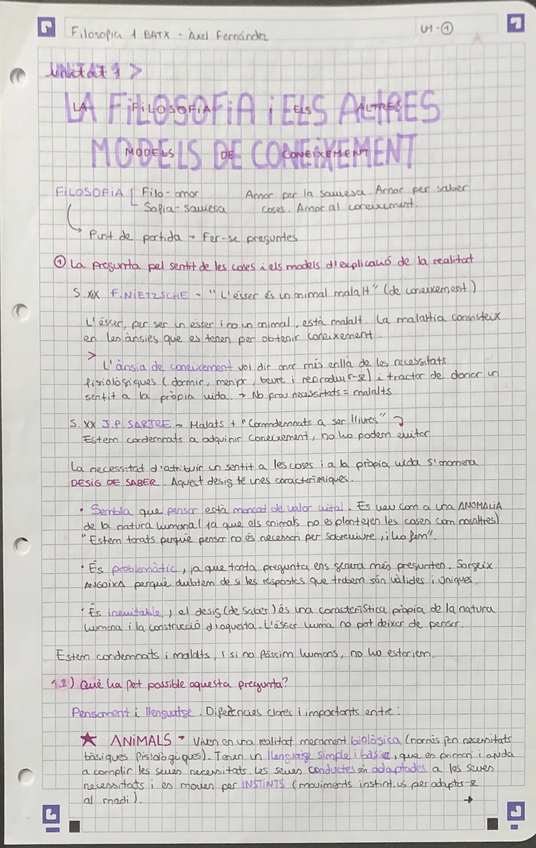 Filosofia 1 BATX - Axel Fernández
U1-①
UNITAT 1 >
LA FILOSOFIA i ELS ALTRES
MODELS DE CONEIXEMENT
FILOSOFIA [ Filo-amor Amor per la saviesa. Amor per saber
Sofia-saviesa coses. Amor al coneixement.
Punt de partida → Fer-se preguntes
① La pregunta pel sentit de les coses i els models d'explicació de la realitat
S.XIX F.NIETZSCHE - "L'ésser és un animal malalt" (de coneixement)
L'ésser, per ser un ésser i no un animal, està malalt. La malaltia consisteix
en les ànsies que es tenen per obtenir coneixement.
>
L'ànsia de coneixement vol dir anar més enllà de les necessitats
fisiològiques (dormir, menjar, beure i reproduir-se) i tractar de donar un
sentit a la pròpia vida. → No prou necessitats = malalts
S. XX J.P. SARTRE - Malats + "Commdemnats a ser lliures"
Estem condemnats a adquirir coneixement, no ho podem evitar
La necessitat d'atribuir un sentit a les coses i a la pròpia vida s'anomena
DESIG DE SABER. Aquest desig té unes característiques.
• Sembla que pensar està mancat de valor vital. Es veu com a una ANOMALIA
de la natura humana (ja que els animals no es plantejen les coses com nosaltres)
"Estem tarats perquè pensar no és necessari per sobreviure, i ho fem".
• És problemàtic, ja que tanta pregunta ens genera més preguntes. Sorgeix
ANGOIXA perquè dubtem de si les respostes que trobem són vàlides i úniques.
• És inevitable, el desig (de saber) és una característica pròpia de la natura
humana i la construcció d'aquesta. L'ésser humà no pot deixar de pensar.
Estem condemnats i malalts, i si no fóssim humans, no ho estaríem.
1.2) Què ha fet possible aquesta pregunta?
Pensament i llenguatge. Diferències clares i importants entre:
★ ANIMALS - Viuen en una realitat merament biològica (només fan necessitats
bàsiques fisiològiques). Tenen un llenguatge simple i bàsic, que es primari i ajuda
a complir les seves necessitats. Les seves conductes són adaptades a les seves
necessitats i es mouen per INSTINTS (moviments instintius per adaptar-se
al medi). →